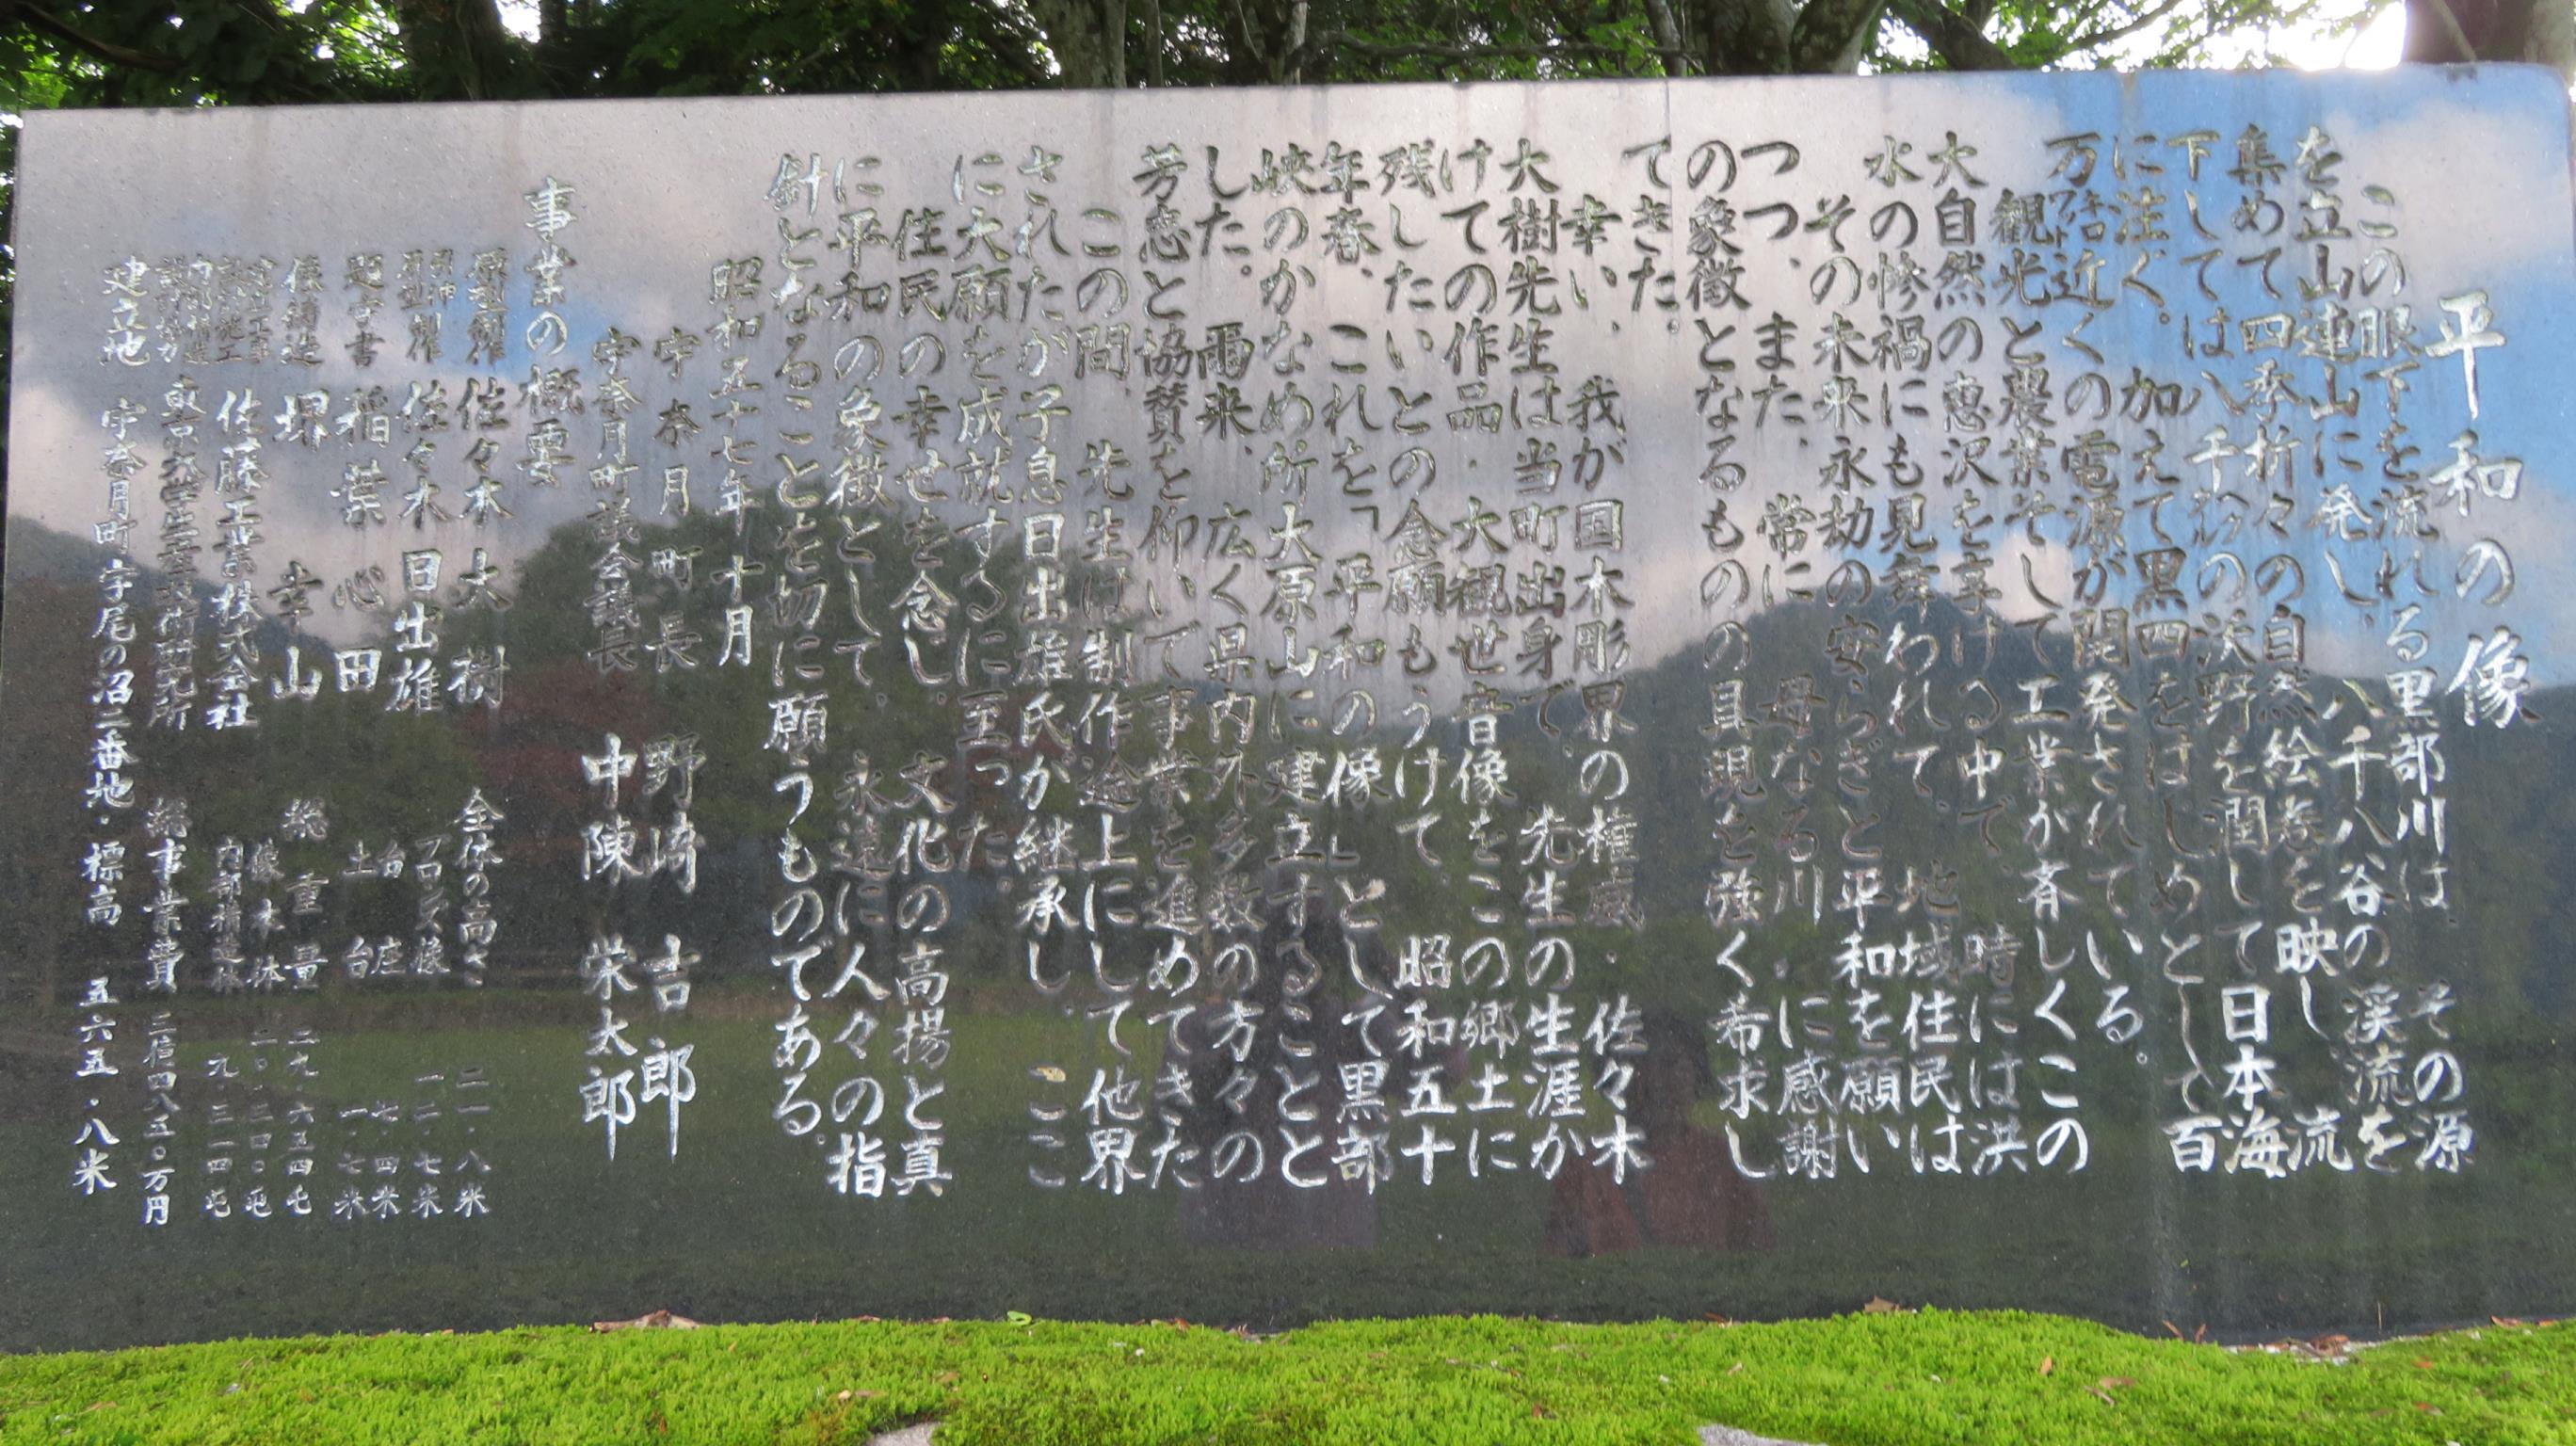 平和の像
この眼下を流れる黒部川は、その源
を立山連山に発し、八千八谷の渓流を
集めて四季折々の自然絵巻を映し、流
下しては八千㌶の沃野を潤して日本海
に注ぐ。加えて黒四をはじめとして百
万㌔㍗近くの電源が開発されている。
観光と農業そして工業が斉しくこの
大自然の恵沢を享ける中で、時には洪
水の惨禍にも見舞われて、地域住民は
その未来永劫の安らぎと平和を願い
つつ、また、常に母なる川、に感謝
の象徴となるものの具現を強く希求し
てきた。
幸い、我が国木彫界の権威・佐々木
大樹先生は当町出身で、先生の生涯か
けての作品・大観世音像をこの郷土に
残したいとの念願もうけて、昭和五十
年春、これを「平和の像」として黒部
峡のかなめ所大原山に建立することと
した。爾来、広く県内外多数の方々の
芳志と協賛を仰いで事業を進めてきた
この間、先生は制作途上にして他界
されたが子息日出雄氏が継承し、ここ
に大願を成就するに至った。
住民の幸せを念し、文化の高揚と真
に平和の象徴として、永遠に人々の指
針となることを切に願うものである。
昭和五十七年十月
宇奈月町長 野崎吉郎
宇奈月町議会議長 中陳栄太郎
事業の概要
原型製作 佐々木大樹 全体の高さ 二一・八米
佐々木日出雄 ブロンズ像 一二・七米
台座 七・四米
題字書 稲葉心田 土台 一・七米
像鋳造 堺幸山 総重量 二九・六五四屯
佐藤工業株式会社 像本体 二〇・三四〇屯
内部構造体 九・三一四屯
総事業費 二億四八五〇万円
建立地 宇奈月町字尾の沼二番地・標高 五六五・八米